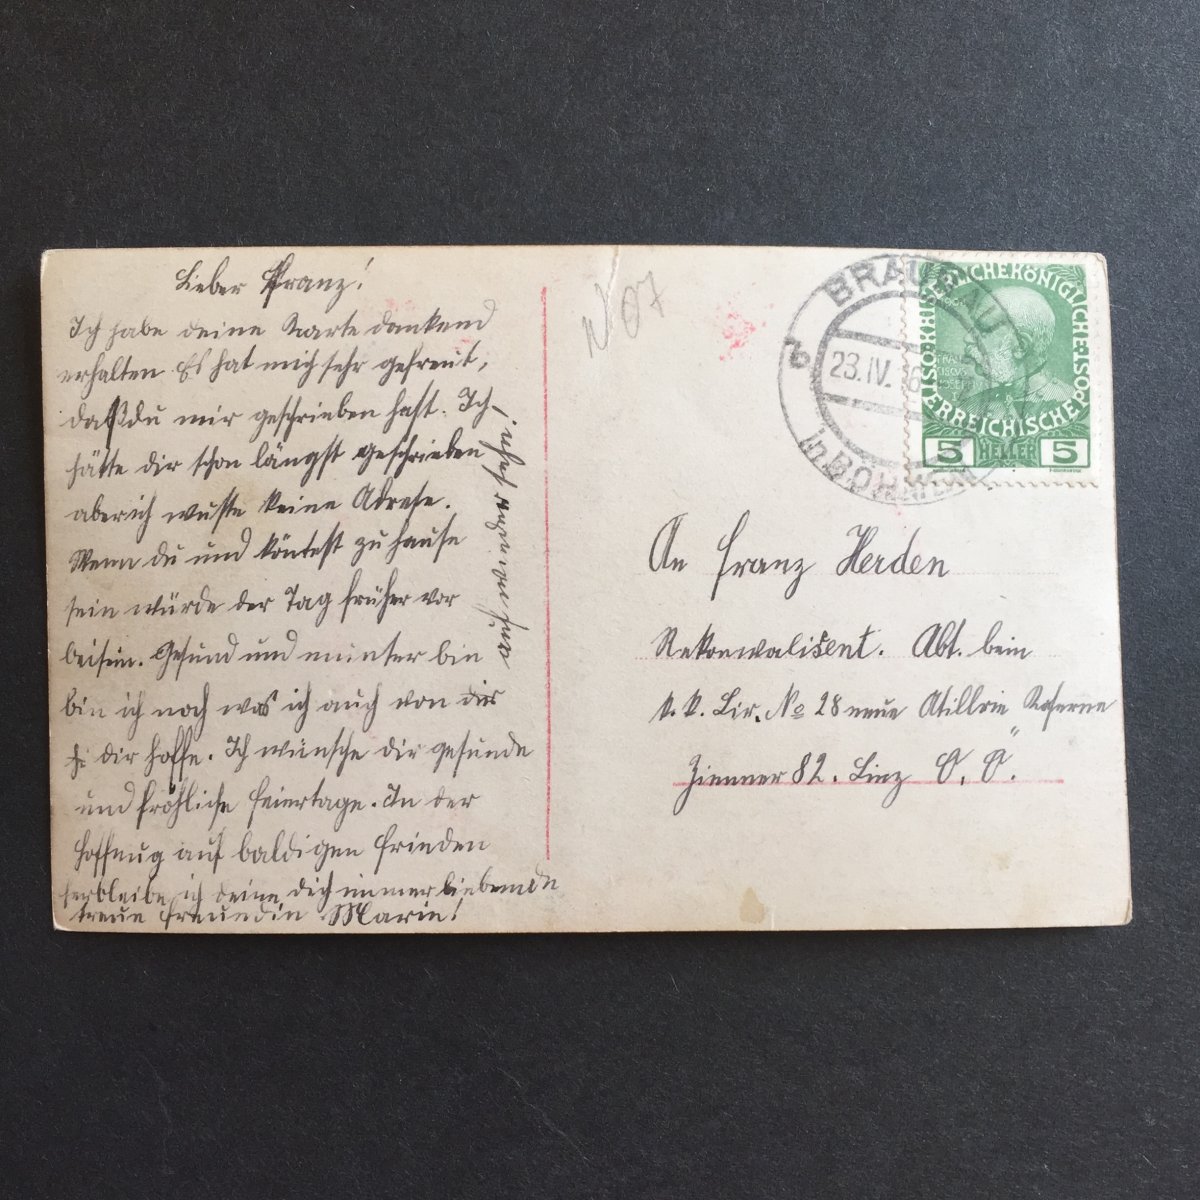 Lieber Franz!
Ich habe deine Karte dankend
erhalten. Es hat mich sehr gefreut,
daß du mir geschrieben hast. Ich
hätte dir schon längst geschrieben
aber ich wusste keine Adrese.
Wenn du und köntest zu hause
sein würde der Tag früher vor
bei sein. Gesund und munter bin
bin ich noch was ich auch von
dir hoffe. Ich wünsche dir gesunde
und fröhliche feiertage. In der
Hoffnug auf baldigen frieden
ferbleibe ich deine dich immer liebende
treue freundin Marie!
auf wiedersehn!
N 07
BRAUNAU
23.IV. 16
b
in BÖHMEN
KAISERLICHE KÖNIGLICHE ÖSTERREICHISCHE POST
5 HELLER 5
An Franz Herden
Rekonwalisent. Abt. beim
k. k. Lir. No 28 neue Atillrie Kaserne
Zimmer 82. Linz O. Ö.